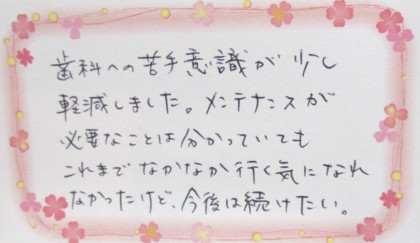 歯科への苦手意識が少し
軽減しました。メンテナンスが
必要なことは分かっていても
これまでなかなか行く気になれ
なかったけど、今後は続けたい。